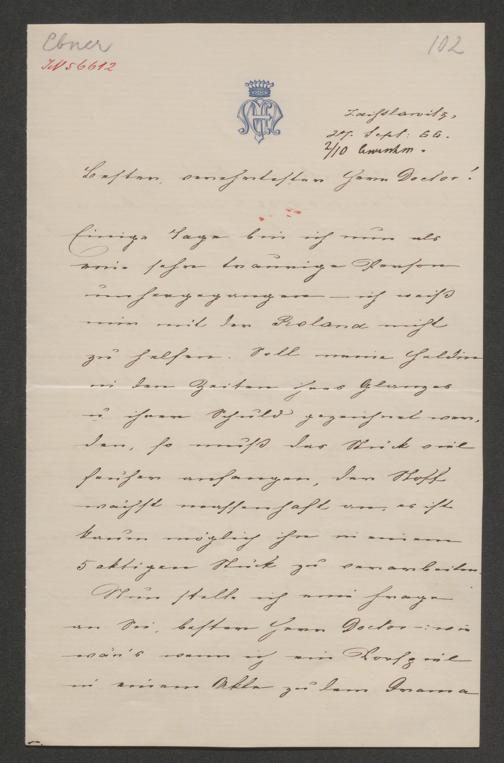 Ebner
102
IN 56612
Zdißlawitz,
27. Sept: 66.
2/10
Bester, verehrtester Herr Doctor!
Einige Tage bin ich nun als
eine sehr traurige Person
umhergegangen – ich weiß
mir mit der Roland nicht
zu helfen. Soll meine Heldin
in den Zeiten ihres Glanzes
u ihrer Schuld gezeichnet wer,
den, so muß das Stück viel
früher anfangen, der Stoff
wächst massenhaft an, es ist
kaum möglich ihn in einem
5 aktigen Stück zu verarbeiten.
Nun stelle ich eine Frage
an Sie, bester Herr Doctor –: wie
wär's wenn ich ein Vorspiel
in einem Akte zu dem Drama